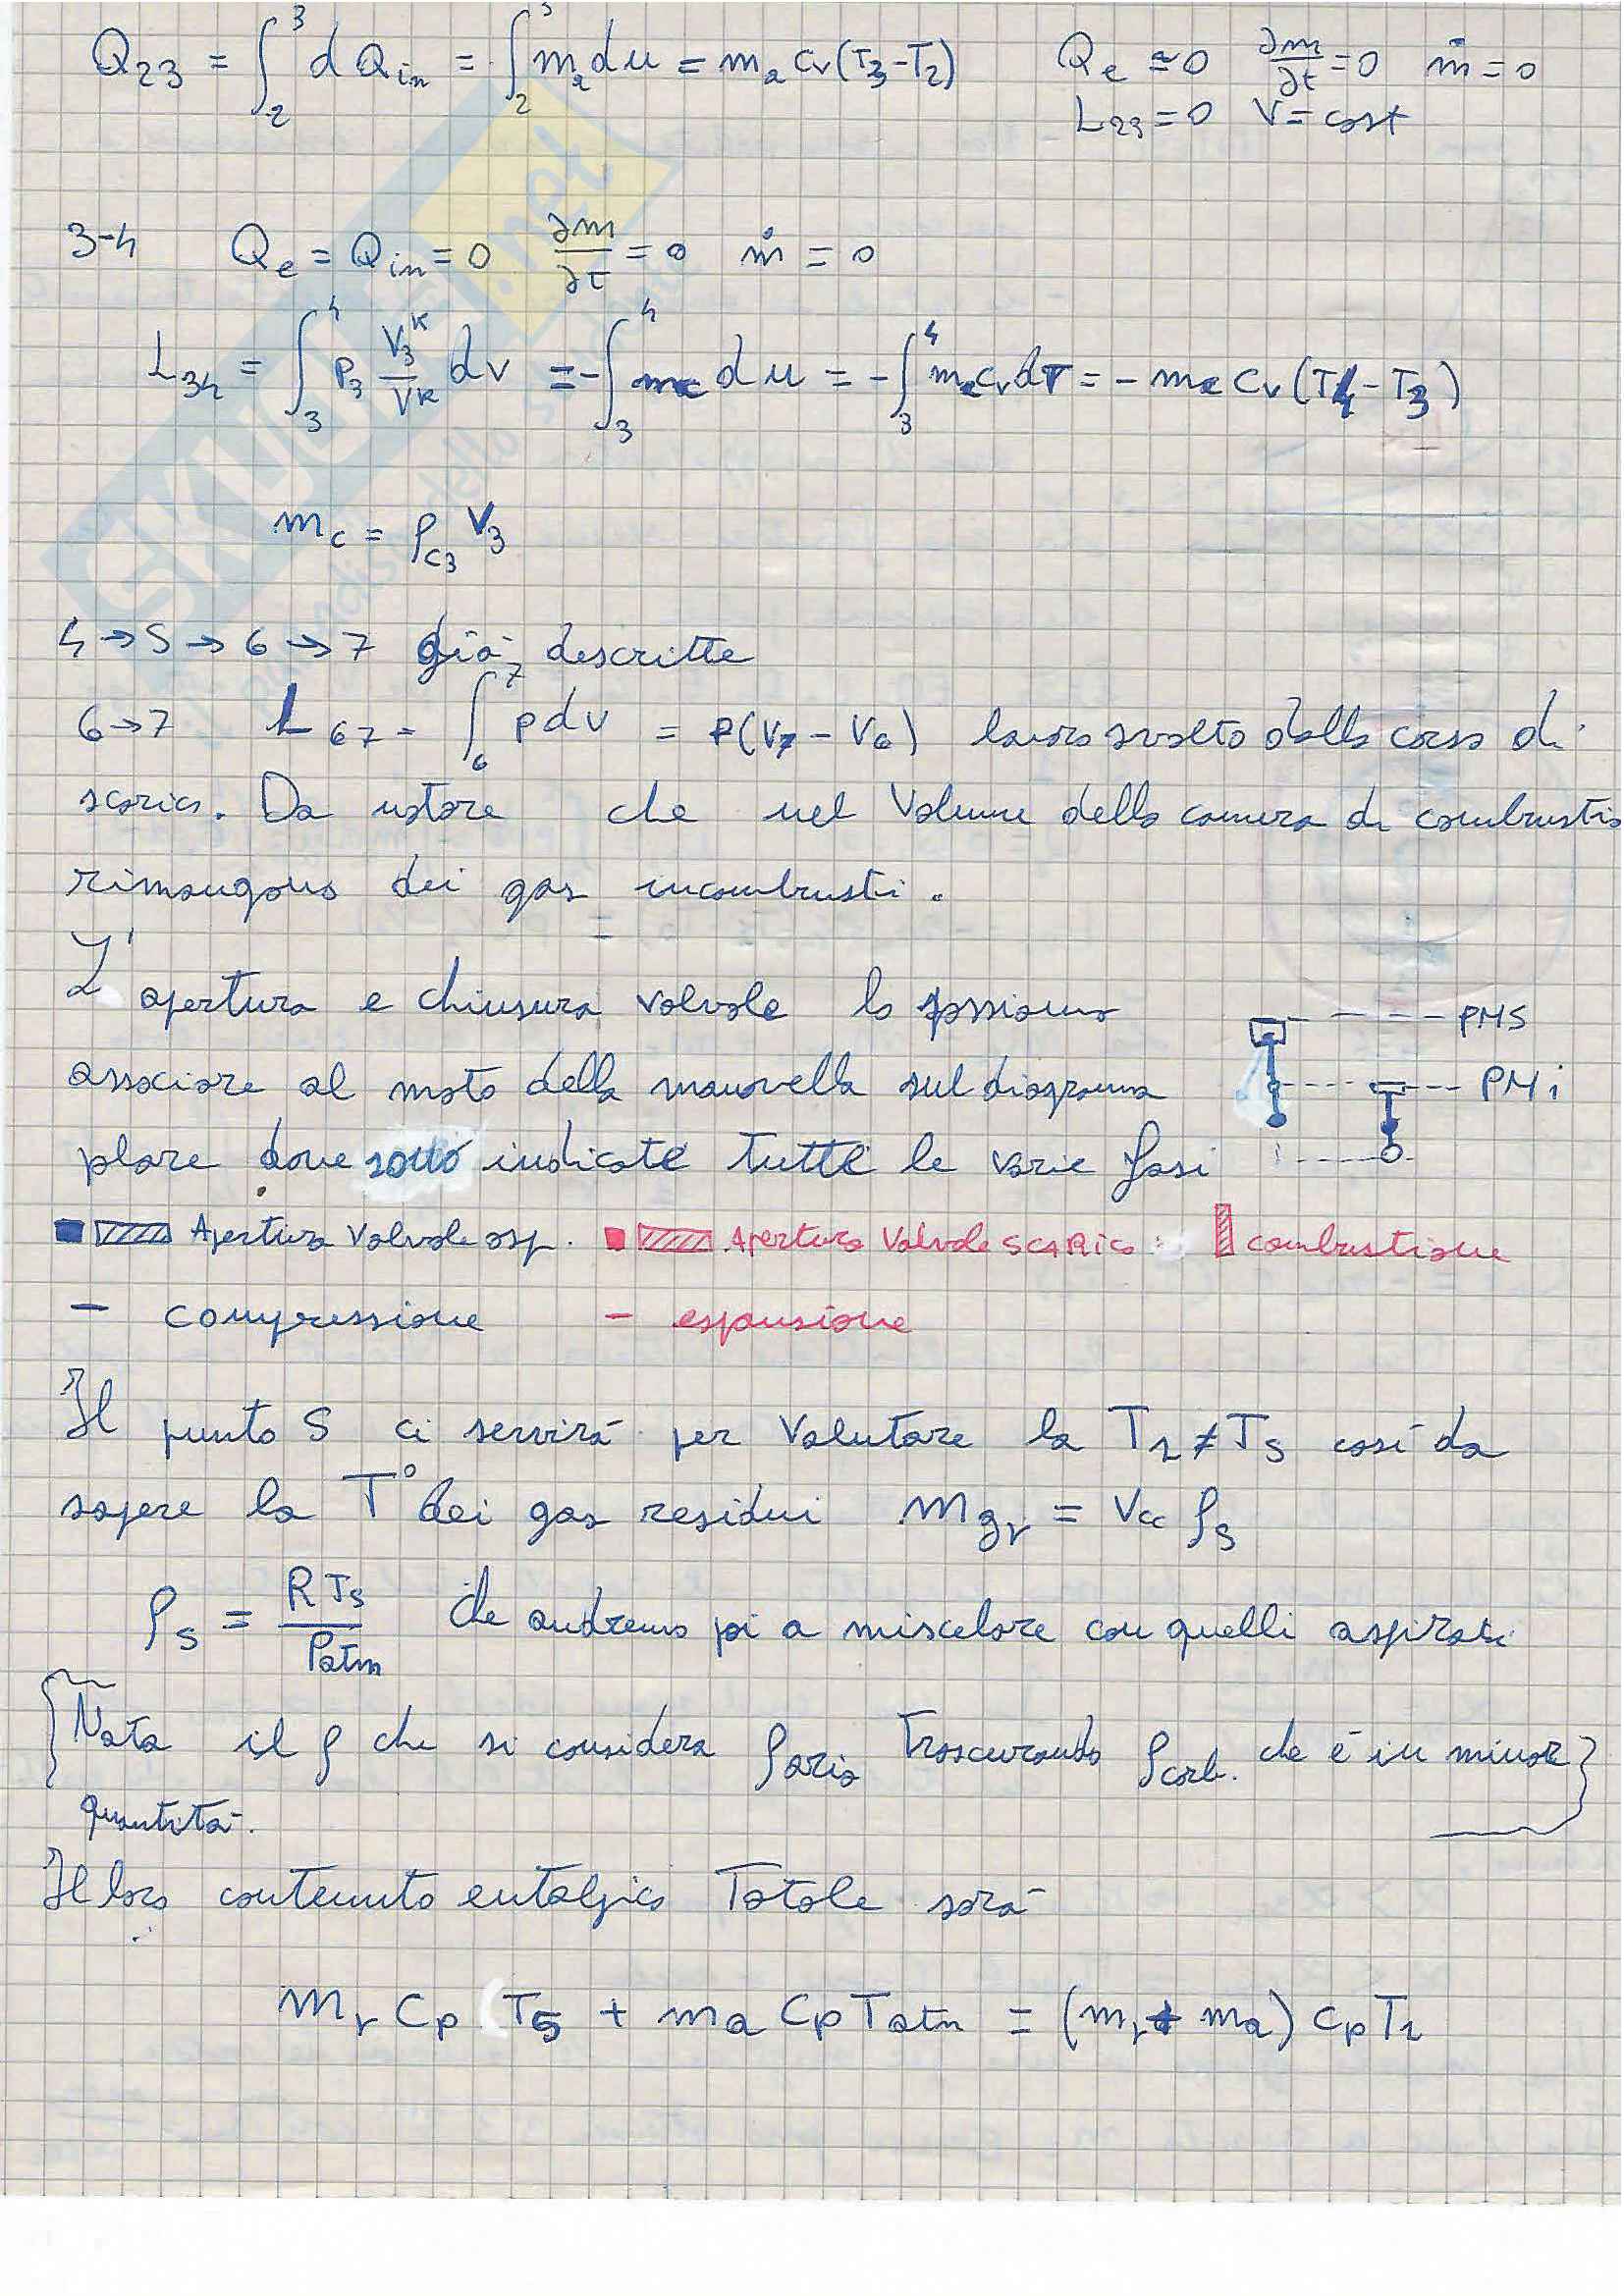 Q₂₃ = ∫₂³ dQin = ∫₂³ mₐ du = mₐ cv (T₃-T₂)   Qe ≃ 0   ∂m/∂t = 0   ṁ = 0
L₂₃ = 0   V = cost
3-4   Qe = Qin = 0   ∂m/∂t = 0   ṁ = 0
L₃₄ = ∫₃⁴ P₃ V₃ᴷ/Vᴷ dv = -∫₃⁴ mc du = -∫₃⁴ mc cv dT = - mc cv (T4 - T₃)
mc = ρc₃ V₃
4 → 5 → 6 → 7 già descritte
6→7   L₆₇ = ∫₆⁷ p dv = P(V₇ - V₆) lavoro svolto dalla corsa di
scarico. Da notare che nel Volume della camera di combustio
rimangono dei gas incombusti.
L'apertura e chiusura valvole lo possiamo
PMS
associare al moto della manovella sul diagramma
PMi
plare dove sono indicate tutte le varie fasi
Apertura Valvole asp.   Apertura Valvole scarico   combustione
- compressione   - espansione
Il punto 5 ci servirà per Valutare la T₁ ≠ T₅ così da
sapere la T° dei gas residui   mgr = Vcc ρ₅
ρ₅ = RT₅/Patm che andremo poi a miscelare con quelli aspirati
{Nota il ρ che si considera ρaria Trascurando ρcorb. che è in minor}
quantità.
Il loro contenuto entalpico Totale sarà
mr Cp (T5 + ma Cp Tatm = (mr + ma) cp T₁